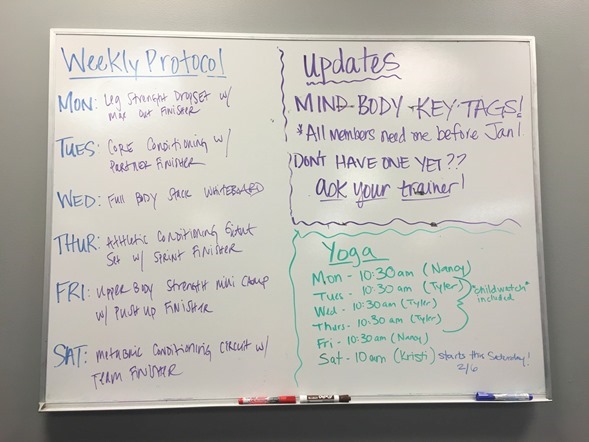 Weekly Protocol
MON: Leg Strength Dropset w/
max out Finisher
TUES: Core Conditioning w/
Partner Finisher
WED: Full Body Stack Whiteboard
THUR: Athletic Conditioning
Set w/ Sprint Finisher
FRI: Upper Body Strength mini
w/ Push up Finisher
SAT: metabolic Conditioning Circuit w/
Team Finisher
updates
MIND-BODY KEY TAGS!
*All members need one before Jan 1
DON'T HAVE ONE YET??
ask your trainer!
Yoga
Mon - 10:30 am (Nancy)
Tues - 10:30 am (Tyler)
Wed - 10:30 am (Tyler)
Thurs - 10:30 am (Tyler)
*childwatch*
included
Fri - 10:30 am (Nancy)
Sat - 10 am (Kristi) starts this Saturday!
2/6